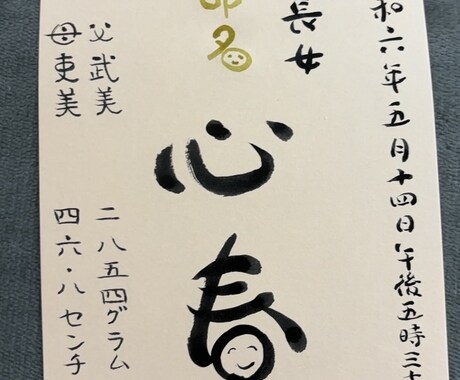 和六年五月十四日午後五時三十
長女
命名
心春
父武美
二八五四グラム
母吏美
四六・八センチ